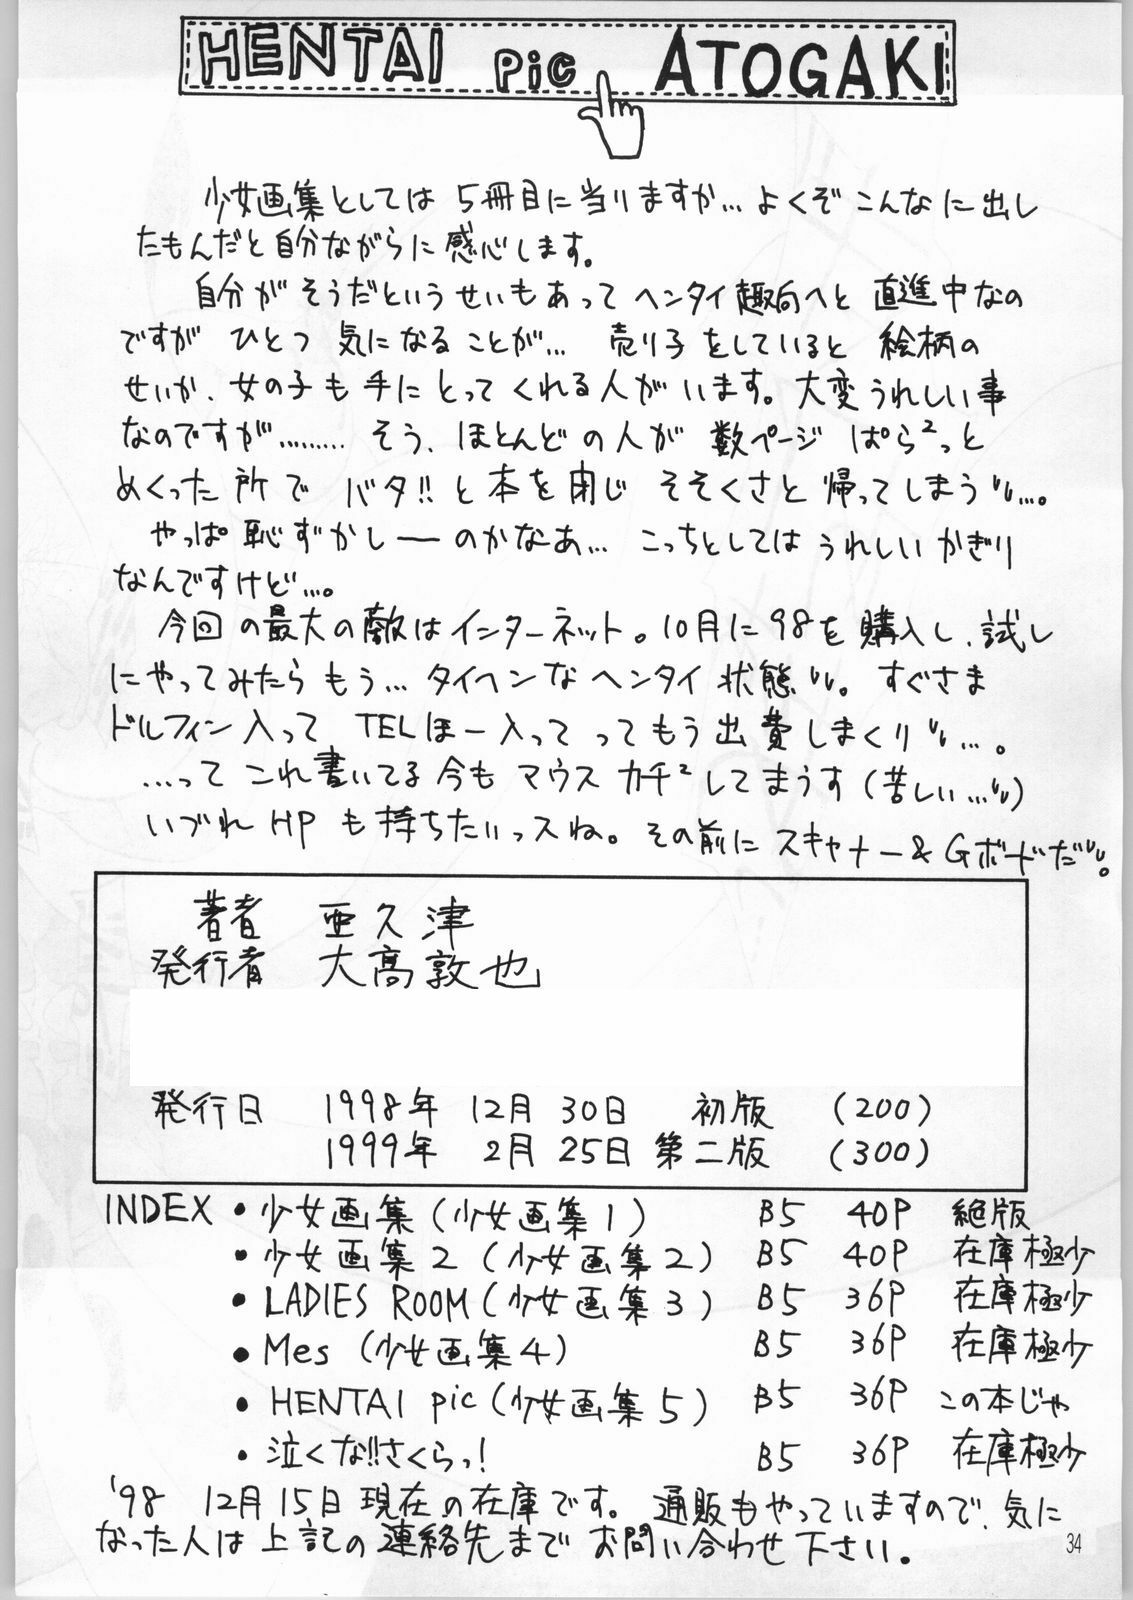 HENTAI pic ATOGAKI
少女画集としては5冊目に当りますか… よくぞこんなに出し
たもんだと自分ながらに感心します。
自分がそうだというせいもあってヘンタイ趣向へと直進中なの
ですが ひとつ気になることが… 売り子をしていると絵柄の
せいか、女の子も手にとってくれる人がいます。大変うれしい事
なのですが……… そう、ほとんどの人が数ページ ぱら²っと
めくった所で バタ!!と本を閉じ そそくさと帰ってしまう…。
やっぱ恥ずかしーのかなあ… こっちとしてはうれしいかぎり
なんですけど…。
今回の最大の敵はインターネット。10月に98を購入し、試し
にやってみたらもう… タイヘンなヘンタイ状態。すぐさま
ドルフィン入って TELほー入ってってもう出費しまくり…。
…ってこれ書いてる今もマウスカチ²してまうす(苦しい…)
いづれHPも持ちたいっスね。その前にスキャナー&Gボードだ。
著者 亜久津
発行者 大高敦也
発行日 1998年 12月 30日 初版 (200)
1999年 2月 25日 第二版 (300)
INDEX ・少女画集(少女画集1) B5 40P 絶版
・少女画集2(少女画集2) B5 40P 在庫極少
・LADIES ROOM(少女画集3) B5 36P 在庫極少
・Mes (少女画集4) B5 36P 在庫極少
・HENTAI pic(少女画集5) B5 36P この本じゃ
・泣くな!!さくらっ! B5 36P 在庫極少
'98 12月15日現在の在庫です。通販もやっていますので、気に
なった人は上記の連絡先までお問い合わせ下さい。
34